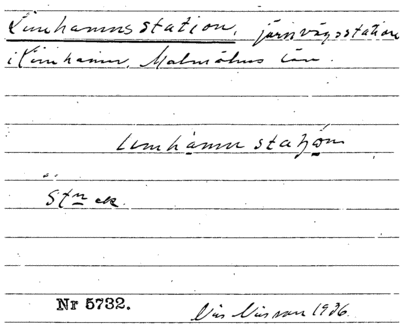 Limhamns station, järnvägsstation
i Limhamn, Malmöhus län.
limhamn station
Stn ek.
Nr 5732.
Nils Nilsson 1936.